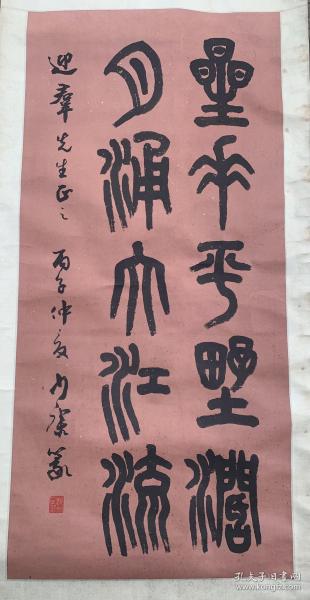 星垂平野濶
月涌大江流
迎羣先生正之 丙子仲夏 篆
孔夫子旧书网
www.kongfz.com